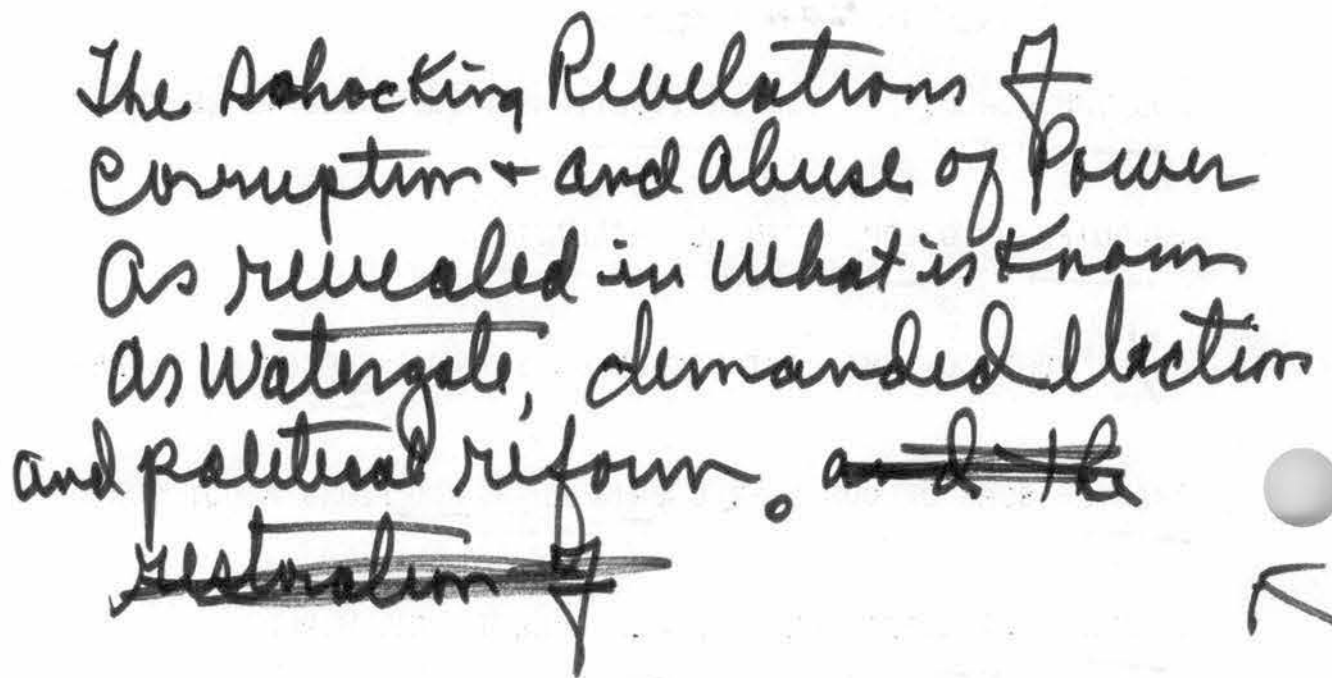 The Shocking Revelations of
Corruption + and Abuse of Power
As revealed in what is Known
As Watergate, demanded election
and political reform. and the
restoration of